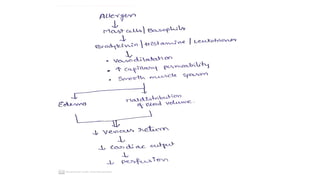 Allergen
↓
Mast cells / Basophils
↓
Bradykinin / Histamine / Leukotrienes
↓
• Vasodilatation
• ↑ capillary permeability
• Smooth muscle spasm
Edema
Maldistribution
of blood volume.
↓ venous return
↓
↓ Cardiac output
↓
↓ perfusion